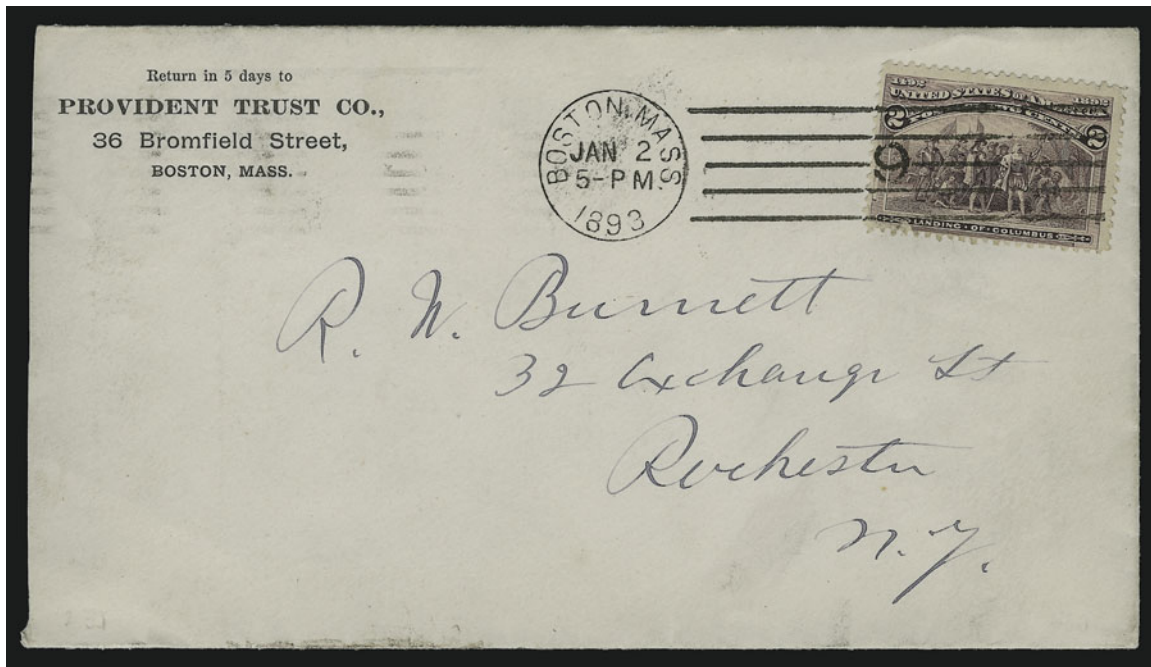 Return in 5 days to
PROVIDENT TRUST CO.,
36 Bromfield Street,
BOSTON, MASS.
BOSTON, MASS
JAN 2
5-PM
1893
9
1492 1892
UNITED STATES OF AMERICA
2 TWO CENTS 2
LANDING · OF · COLUMBUS
R. W. Burnett
32 Exchange St
Rochester
N.Y.